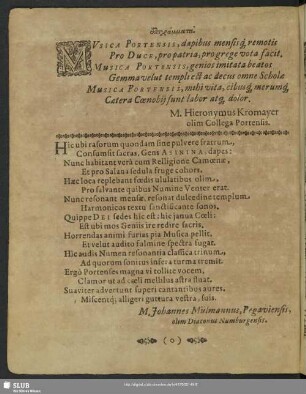 MUSICA PORTENSIS, dapibus mensisq; remotis
Pro DUCE, pro patria, pro grege vota facit.
MUSICA PORTENSIS, genios imitata beatos
Gemma velut templi est ac decus omne Scholæ
MUSICA PORTENSIS, mihi vita, cibusq; merumq;
Cætera Cœnobij sunt labor atq; dolor.
M. Hieronymus Kromayer
olim Collega Portensis.
Hic ubi rasorum quondam sine pulvere fratrum,
Consumsit sacras, Gens ASININA, dapes:
Nunc habitant verâ cum Relligione Camœnæ,
Et pro Salana sedula fruge cohors.
Hæc loca replebant fœdis ululatibus olim
Pro salvante quibus Numine Venter erat.
Nunc resonant mensæ, resonat dulcedine templum
Harmonicos textu sanctificante sonos.
Quippe DEI sedes hic est: hic janua Cœli:
Est ubi mos Geniis ire redire sacris,
Horrendas animi furias pia Musica pellit,
Et velut audito fulmine spectra fugat.
Hic audis Numen resonantia classica trinum,
Ad quorum sonitus infera turma tremit.
Ergò Portenses magna vi tollite vocem,
Clamor ut ad cœli mellitus astra fluat.
Suaviter advertunt superi cantantibus aures,
Miscentq; aligeri guttura vestra, suis.
M. Johannes Mülmannus, Pegaviensis,
olim Diaconus Numburgensis.
(o)
SLUB
Wir führen Wissen.